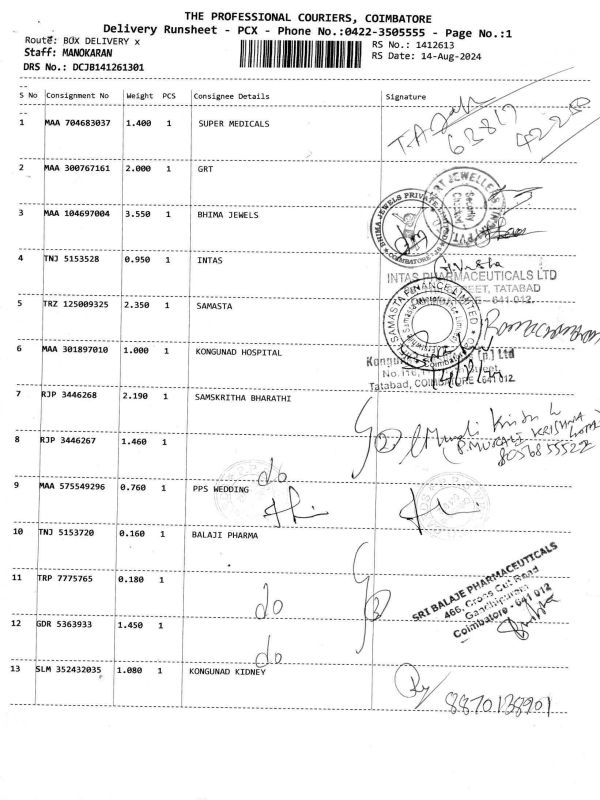 THE PROFESSIONAL COURIERS, COIMBATORE
Delivery Runsheet - PCX - Phone No.:0422-3505555 - Page No.:1
Route: BOX DELIVERY x
RS No.: 1412613
Staff: MANOKARAN
RS Date: 14-Aug-2024
DRS No.: DCJB141261301
S No Consignment No Weight PCS Consignee Details Signature
1 MAA 704683037 1.400 1 SUPER MEDICALS
63817
42250
2 MAA 300767161 2.000 1 GRT
3 MAA 104697004 3.550 1 BHIMA JEWELS
BHIMA JEWELS PRIVATE LIMITED
COIMBATORE
Security
4 TNJ 5153528 0.950 1 INTAS
INTAS PHARMACEUTICALS LTD
STREET, TATABAD
COIMBATORE - 641 012.
5 TRZ 125009325 2.350 1 SAMASTA
SAMASTA FINANCE LIMITED
6 MAA 301897010 1.000 1 KONGUNAD HOSPITAL
Tatabad, COIMBATORE 641 012
7 RJP 3446268 2.190 1 SAMSKRITHA BHARATHI
8 RJP 3446267 1.460 1
do
2
P. MURALI KRISHNA
8056855522
9 MAA 575549296 0.760 1 PPS WEDDING
10 TNJ 5153720 0.160 1 BALAJI PHARMA
11 TRP 7775765 0.180 1
do
SRI BALAJE PHARMACEUTICALS
466, Cross Cut Road
Gandhipuram
Coimbatore - 641 012
12 GDR 5363933 1.450 1
do
13 SLM 352432035 1.080 1 KONGUNAD KIDNEY
8870138901